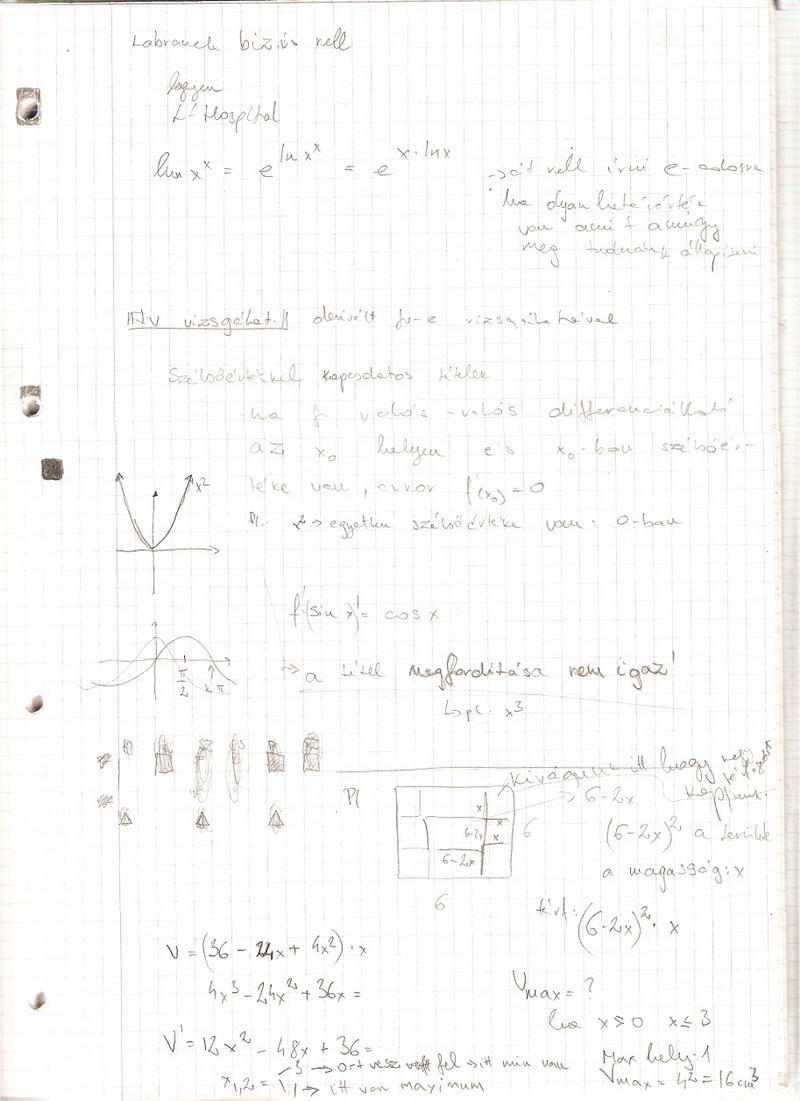 biz.
legyen
L'Hospital
lim x^x = e^(ln x^x) = e^(x·lnx) → kell írni
ha olyan határérték
van amit amúgy
meg tudnánk állapítani
vizsgálat derivált fv-e vizsgálatával
Szélsőértékkel kapcsolatos tételek
-ha f valós-valós differenciálható
az x₀ helyen és x₀-ban szélsőér-
téke van, akkor f'(x₀)=0
x²
Pl.: x² → egyetlen szélsőértéke van: 0-ban
f'(sin x)' = cos x
π/2
π
→ a tétel megfordítása nem igaz!
↳ pl. x³
Pl
Kivágunk itt hogy
kapjunk.
→ 6-2x
x
6-2x
x
x
6-2x
6
6
(6-2x)² a terület
a magasság: x
térf: (6-2x)²·x
V = (36 - 24x + 4x²)·x
4x³-24x²+36x =
Vmax = ?
ha x≥0 x≤3
V' = 12x² - 48x + 36 =
x₁,₂ =
3 → 0-t vesz fel → itt min van
1 → itt van maximum
Max hely: 1
Vmax = 4² = 16cm³